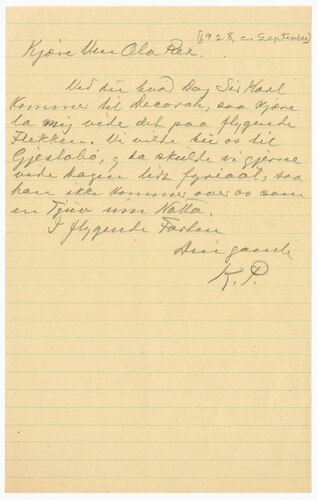 [1928, c. September]
Kjære Ven Ola Rex.
Ved du hvad Dag Sir Karl
kommer til Decorah, saa kjære
la mig vide det paa flygende
Flekken. Vi vilde be os til
Gjestabø, og da skulde vi gjerne
vide Dagen lidt fyriaat, saa
han ikke kommer over os som
en Tjuv um Notta.
I flygende Farten
Din gamle
K. P.